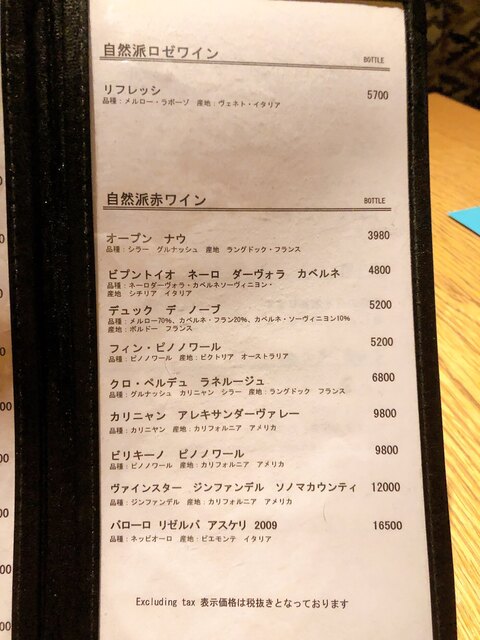 自然派ロゼワイン BOTTLE
リフレッシ 5700
品種：メルロー・ラボーゾ 産地：ヴェネト・イタリア
自然派赤ワイン BOTTLE
オープン ナウ 3980
品種：シラー グルナッシュ 産地 ラングドック・フランス
ビプントイオ ネーロ ダーヴォラ カベルネ 4800
品種：ネーロダーヴォラ・カベルネソーヴィニヨン・
産地 シチリア イタリア
デュック デ ノーブ 5200
品種：メルロー70%、カベルネ・フラン20%、カベルネ・ソーヴィニヨン10%
産地：ボルドー フランス
フィン・ピノノワール 5200
品種：ピノノワール 産地：ビクトリア オーストラリア
クロ・ペルデュ ラネルージュ 6800
品種：グルナッシュ カリニャン シラー 産地：ラングドック フランス
カリニャン アレキサンダーヴァレー 9800
品種：カリニヤン 産地：カリフォルニア アメリカ
ビリキーノ ピノノワール 9800
品種：ピノノワール 産地：カリフォルニア アメリカ
ヴァインスター ジンファンデル ソノマカウンティ 12000
品種：ジンファンデル 産地：カリフォルニア アメリカ
バローロ リゼルバ アスケリ 2009 16500
品種：ネッビオーロ 産地：ピエモンテ イタリア
Excluding tax 表示価格は税抜きとなっております